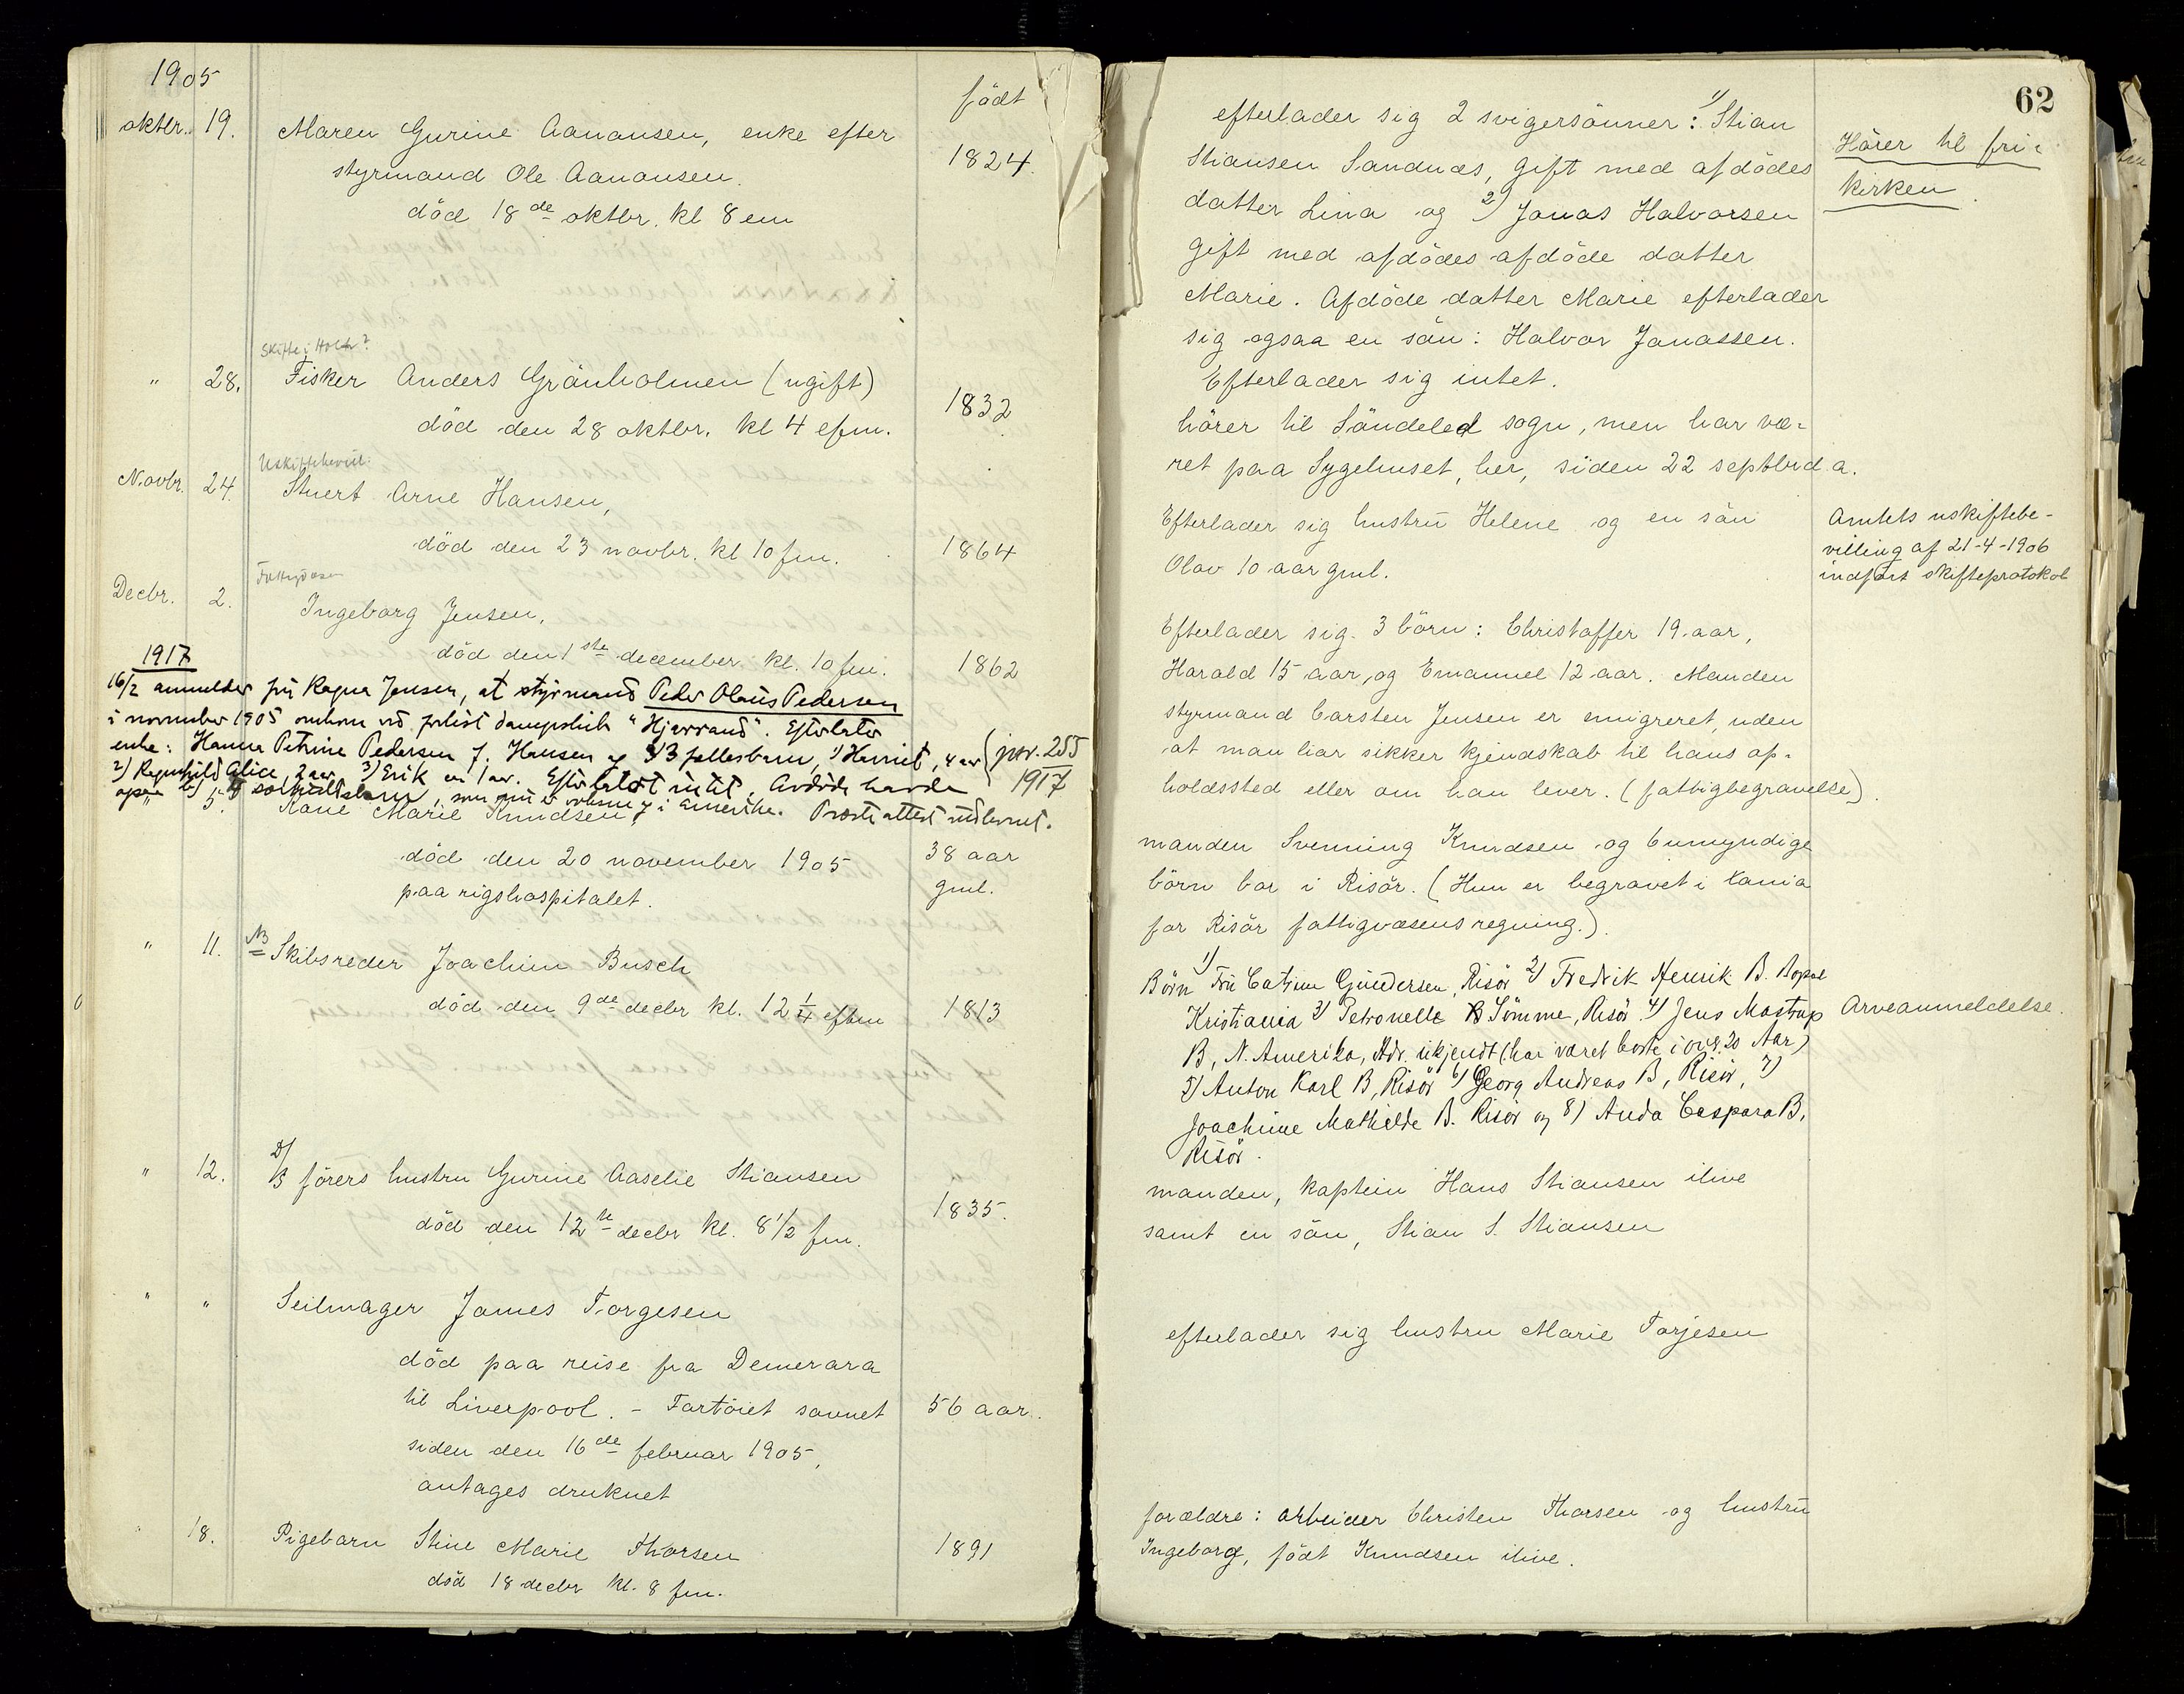 1905
födt
oktbr. 19. Maren Gurine Aanansen, enke efter
styrmand Ole Aanansen.
1824.
död 18de oktbr. kl 8 em
Skifte i Holt?
" 28. Fisker Anders Grönholmen (ugift)
1832
död den 28 oktbr. kl 4 efm.
Uskiftebevill.
Novbr. 24. Stuert Arne Hansen,
död den 23 novbr. kl 10 fm. 1864
Decbr. 2. Ingeborg Jensen,
död den 1ste december kl. 10 fm. 1862
1917
16/2 anmelder frü Ragna Jensen, at styrmand Peder Olaus Pedersen
i november 1905 omkom ved forlist dampskib "Hjarrand". Efterlater
enke: Hanna Petrine Pedersen f. Hansen og 3 fellesbarn, 1) Harriet, 4 aar (jnr. 255
2) Ragnhild Alice, 2 aar 3) Erik en 1 aar. Efterlatt intet. Avdöde havde 1917
særkullsbarn, som nu er voksne og i Amerika. Prosteattest utlevert.
" 5. Karie Marie Knudsen,
död den 20 november 1905 38 aar
paa rigshospitalet. gml.
" 11. NB Skibsreder Joachim Busch
död den 9de decbr kl. 12 1/4 eftm 1813
" 12. D/B förers hustru Gurine Aaselie Stiansen
1835.
död den 12te decbr kl. 8 1/2 fm.
" " Seilmager James Torgesen
död paa reise fra Demerara
til Liverpool. - Fartöiet savnet 56 aar.
siden den 16de februar 1905,
antages druknet
" 18. Pigebarn Stine Marie Thorsen 1891
död 18 decbr kl. 8 fm.
62
efterlader sig 2 svigersönner: 1) Stian
Stiansen Sandnæs, gift med afdödes
datter Lina og 2) Jonas Halvorsen
gift med afdödes afdöde datter
Marie. Afdöde datter Marie efterlader
sig ogsaa en sön: Halvor Jonassen.
Hörer til fri-
kirken
Efterlader sig intet.
hörer til Söndeled sogn, men har væ-
ret paa Sygehuset, her, siden 22 septbr d. a.
Efterlader sig hustrü Helene og en sön
Olav 10 aar gml.
Amtets uskiftebe-
villing af 21-4-1906
indfört skifteprotokol
Efterlader sig 3 börn: Christoffer 19 aar,
Harald 15 aar, og Emanuel 12 aar. Manden
styrmand Carsten Jensen er emigreret, uden
at man har sikker kjendskab til hans op-
holdssted eller om han lever. (fattigbegravelse).
manden Svenning Knudsen og 6 umyndige
börn bor i Risör. (Hun er begravet i Xania
for Risör fattigvæsens regning.).
Börn 1) Frü Catrine Gündersen, Risör 2) Fredrik Henrik B.
Kristiania 3) Petronelle B Sömme, Risör 4) Jens Mostrup
B, N. Amerika, Adr. ükjendt (har været borte i over 20 Aar)
5) Anton Karl B, Risör 6) Georg Andreas B, Risör, 7)
Joachime Mathilde B. Risör og 8) Anda Caspara B,
Risör.
Arveanmeldelse.
manden, kaptein Hans Stiansen ilive
samt en sön, Stian S. Stiansen
efterlader sig hustru Marie Torjesen
forældre: arbeider Christen Thorsen og hustrü
Ingeborg, födt Knudsen ilive.